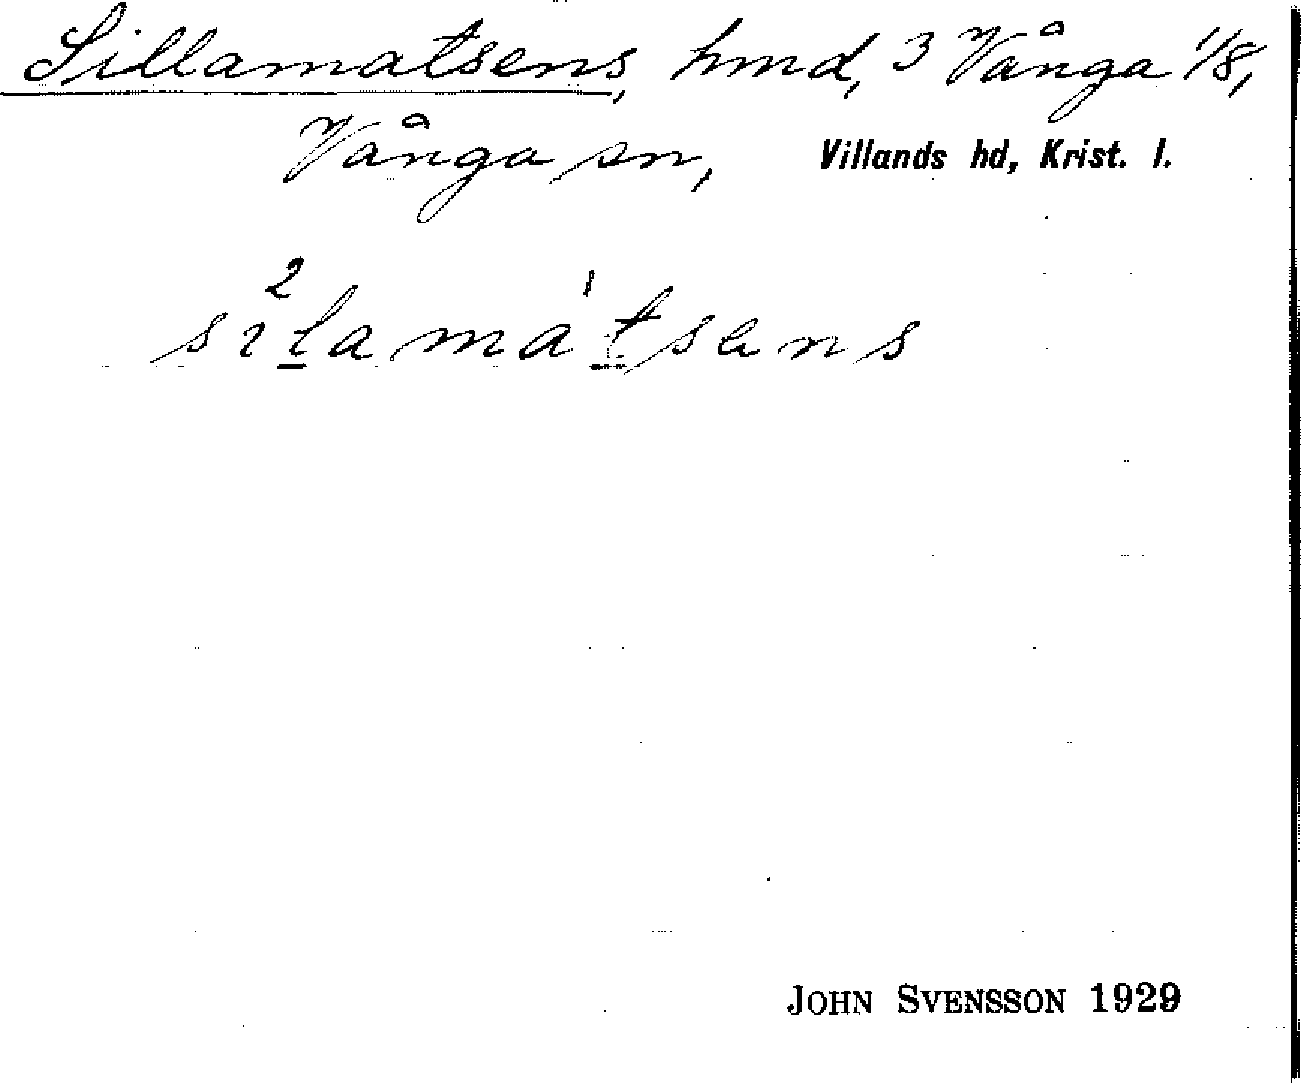 Sillamatsens, hmd, 3 Vånga 1/8,
Vånga sn, Villands hd, Krist. l.
2 1
sılamatsens
JOHN SVENSSON 1929